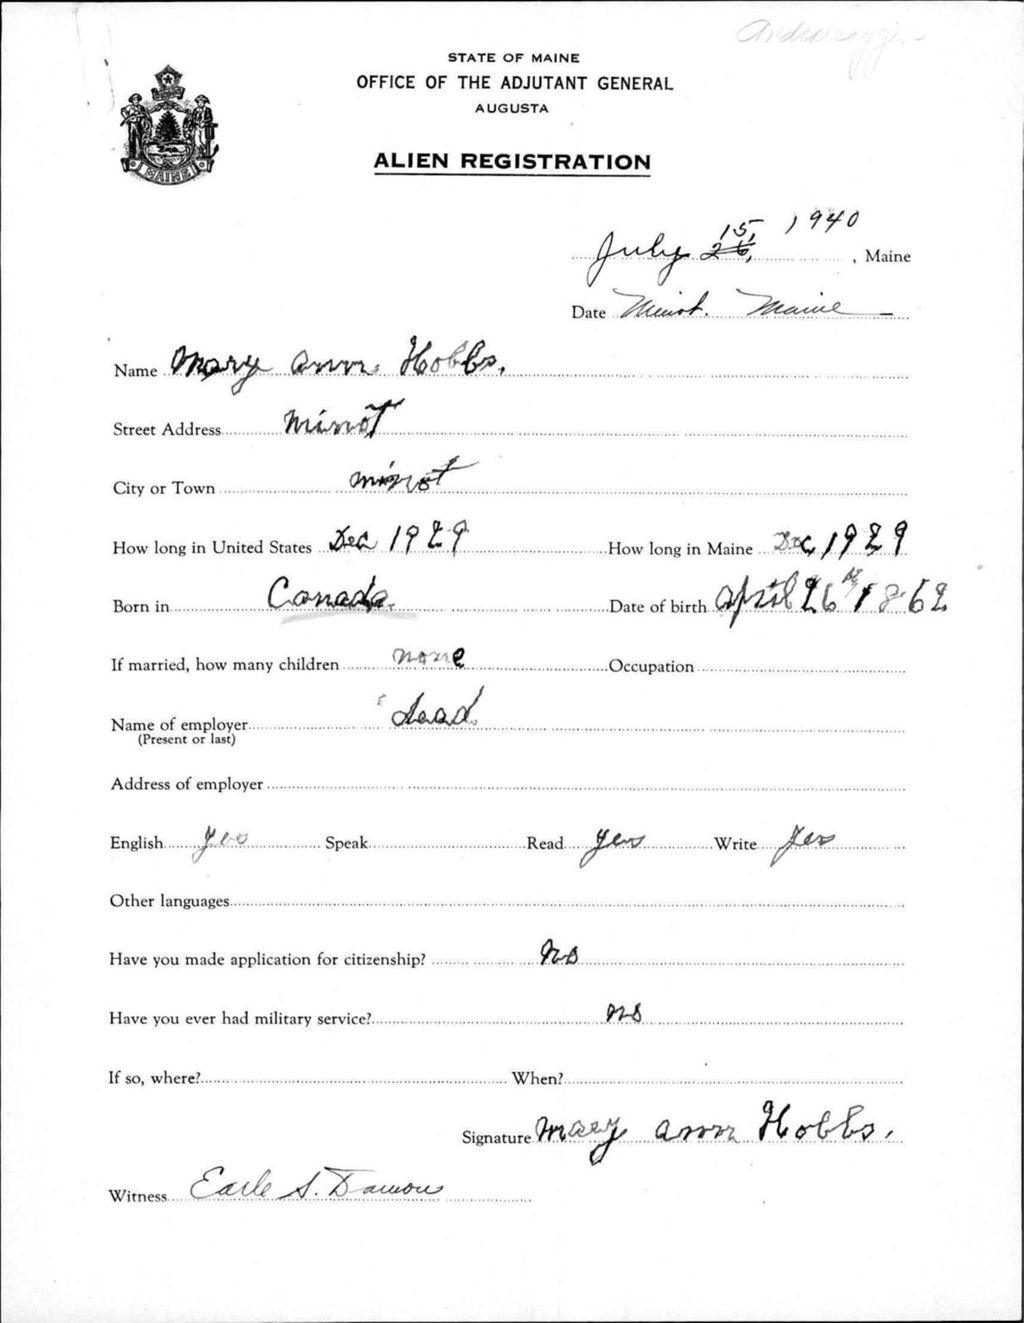 Androscoggin
STATE OF MAINE
OFFICE OF THE ADJUTANT GENERAL
AUGUSTA
MAINE
ALIEN REGISTRATION
July 26, 15, 1940, Maine
Date Minot. Maine
Name Mary ann Hobbs.
Street Address Minot
City or Town minot
How long in United States Dec 1929 How long in Maine Dec, 1929
Born in Canada. Date of birth april 26 th 1862
If married, how many children none Occupation
Name of employer dead
(Present or last)
Address of employer
English yes Speak Read yes Write yes
Other languages
Have you made application for citizenship? No
Have you ever had military service? no
If so, where? When?
Signature Mary ann Hobbs.
Witness Earle S. Damon